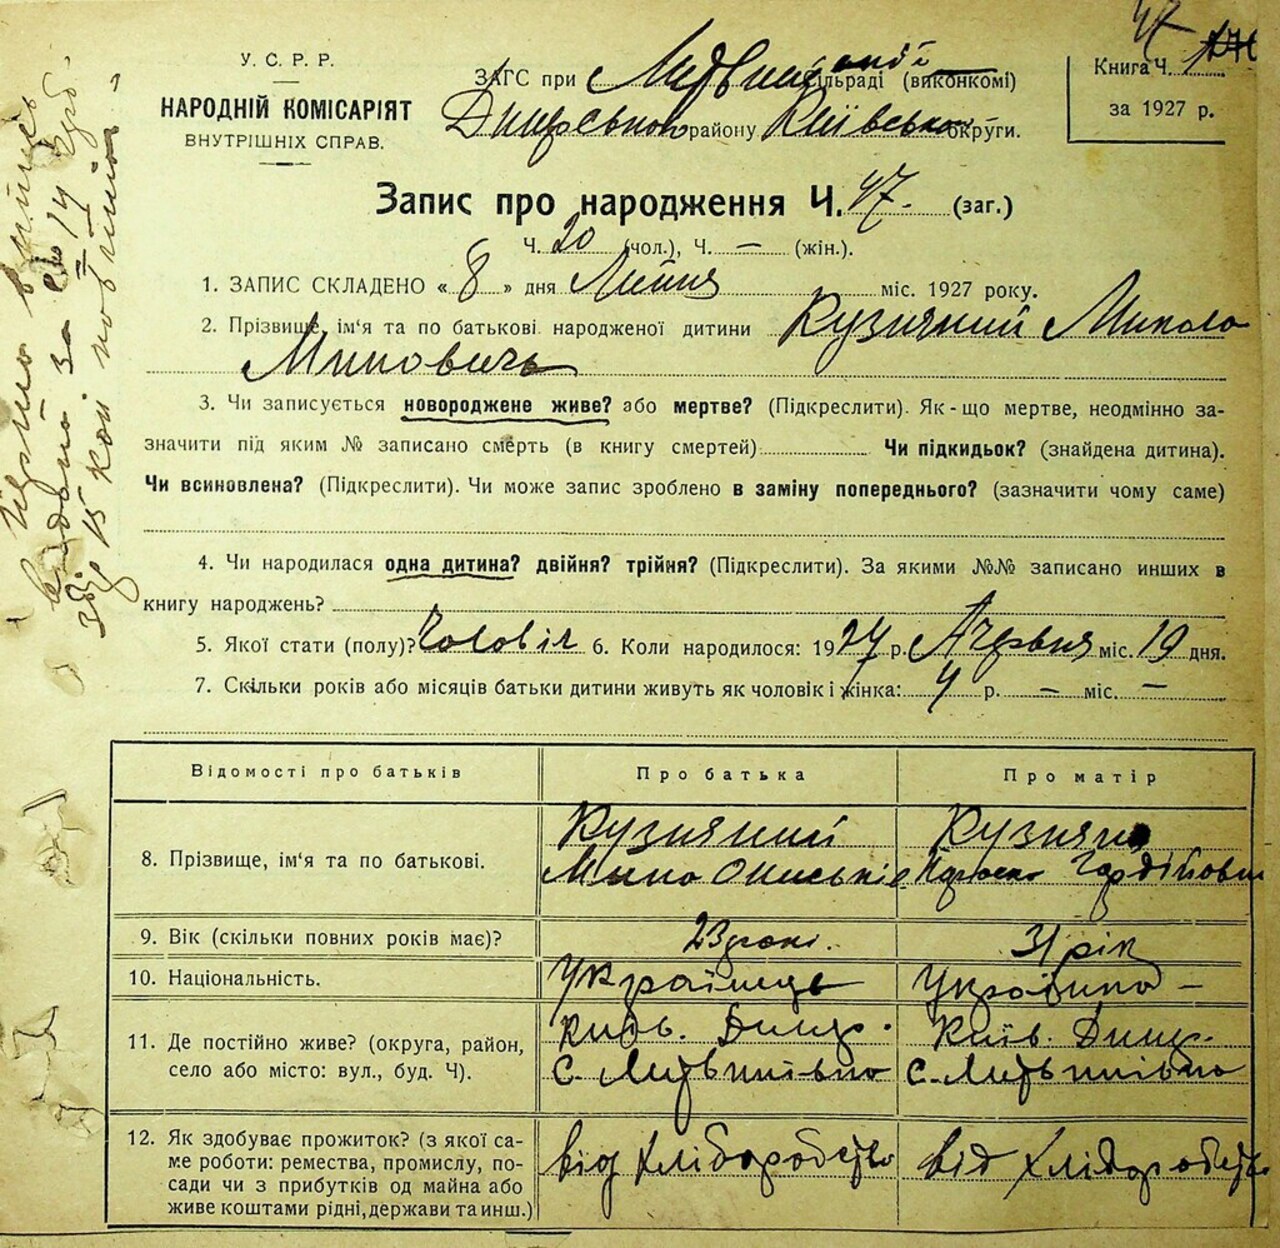 У. С. Р. Р.
НАРОДНІЙ КОМІСАРІЯТ
ВНУТРІШНІХ СПРАВ.
ЗАГС при сільраді (виконкомі)
району Київської округи.
47
Книга Ч.
за 1927 р.
Запис про народження Ч. 47. (заг.)
Ч. 20 (чол.), Ч. — (жін.).
1. ЗАПИС СКЛАДЕНО « 8 » дня Липня міс. 1927 року.
2. Прізвище, ім'я та по батькові народженої дитини Микола
3. Чи записується новороджене живе? або мертве? (Підкреслити). Як-що мертве, неодмінно за-
значити під яким № записано смерть (в книгу смертей) Чи підкидьок? (знайдена дитина).
Чи всиновлена? (Підкреслити). Чи може запис зроблено в заміну попереднього? (зазначити чому саме)
4. Чи народилася одна дитина? двійня? трійня? (Підкреслити). За якими №№ записано инших в
книгу народжень?
5. Якої стати (полу)? Чоловіч 6. Коли народилося: 1927 р. Червня міс. 19 дня.
7. Скільки років або місяців батьки дитини живуть як чоловік і жінка: 4 р. — міс. —
Відомості про батьків Про батька Про матір
8. Прізвище, ім'я та по батькові.
Гордійовна
9. Вік (скільки повних років має)? 23 роки. 31 рік
10. Національність. Українець Українка —
11. Де постійно живе? (округа, район, Київ. Димер. Київ. Димер.
село або місто: вул., буд. Ч). с. Литвинівка с. Литвинівка
12. Як здобуває прожиток? (з якої са-
ме роботи: ремества, промислу, по- від Хліборобства від Хліборобства
сади чи з прибутків од майна або
живе коштами рідні, держави та инш.)